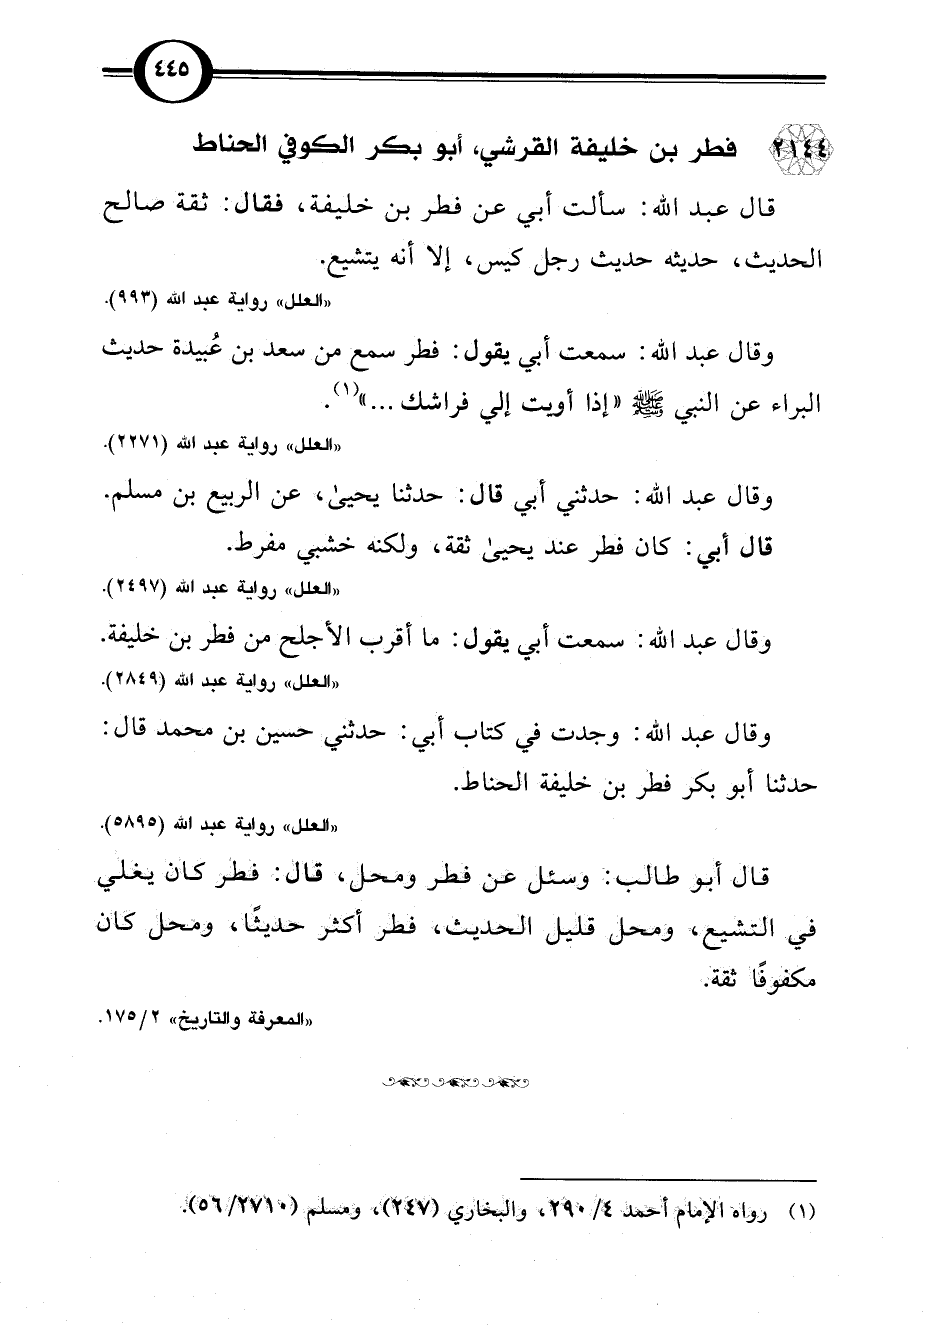 ٤٤٥
٢١٤٤ فطر بن خليفة القرشي، أبو بكر الكوفي الحناط
قال عبد الله: سألت أبي عن فطر بن خليفة، فقال: ثقة صالح
الحديث، حديثه حديث رجل كيس، إلا أنه يتشيع.
«العلل» رواية عبد الله (٩٩٣).
وقال عبد الله: سمعت أبي يقول: فطر سمع من سعد بن عُبيدة حديث
البراء عن النبي ﷺ «إذا أويت إلي فراشك ...»(١).
«العلل» رواية عبد الله (٢٢٧١).
وقال عبد الله: حدثني أبي قال: حدثنا يحيىٰ، عن الربيع بن مسلم.
قال أبي: كان فطر عند يحيىٰ ثقة، ولكنه خشبي مفرط.
«العلل» رواية عبد الله (٢٤٩٧).
وقال عبد الله: سمعت أبي يقول: ما أقرب الأجلح من فطر بن خليفة.
«العلل» رواية عبد الله (٢٨٤٩).
وقال عبد الله: وجدت في كتاب أبي: حدثني حسين بن محمد قال:
حدثنا أبو بكر فطر بن خليفة الحناط.
«العلل» رواية عبد الله (٥٨٩٥).
قال أبو طالب: وسئل عن فطر ومحل، قال: فطر كان يغلي
في التشيع، ومحل قليل الحديث، فطر أكثر حديثًا، ومحل كان
مكفوفًا ثقة.
«المعرفة والتاريخ» ٢/ ١٧٥.
(١) رواه الإمام أحمد ٤/ ٢٩٠، والبخاري (٢٤٧)، ومسلم (٢٧١٠/ ٥٦).